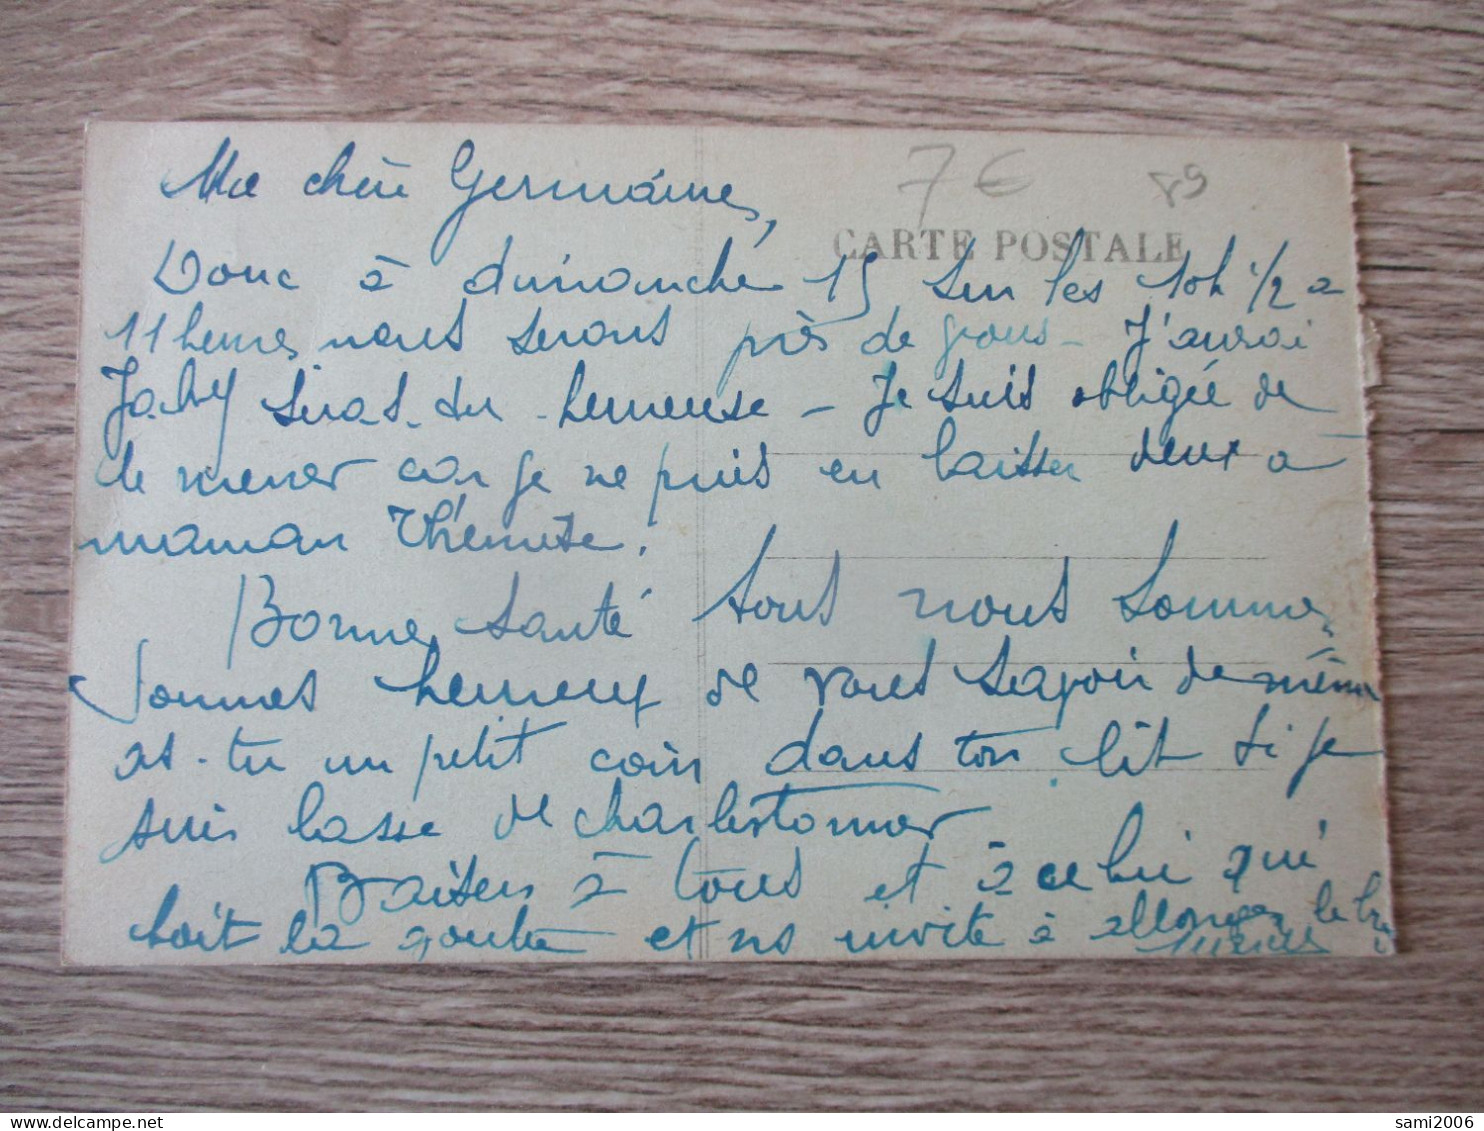 Ma chère Germaine,
7 € 89
CARTE POSTALE
Donc à dimanche 15 sur les 10h 1/2 a
11 heures nous serons près de vous - J'aurai
Jacky heureuse - Je suis obligée de
de mener car je ne puis en laisser deux à
maman Thérèse.
Bonne santé tous nous sommes
sommes heureux de vous savoir de même
as-tu un petit coin dans ton lit si je
suis lasse de charlestonner
Baisers à tous et à celui qui
boit la goutte et ns invite à allonger le
sami2006
delcampe.net